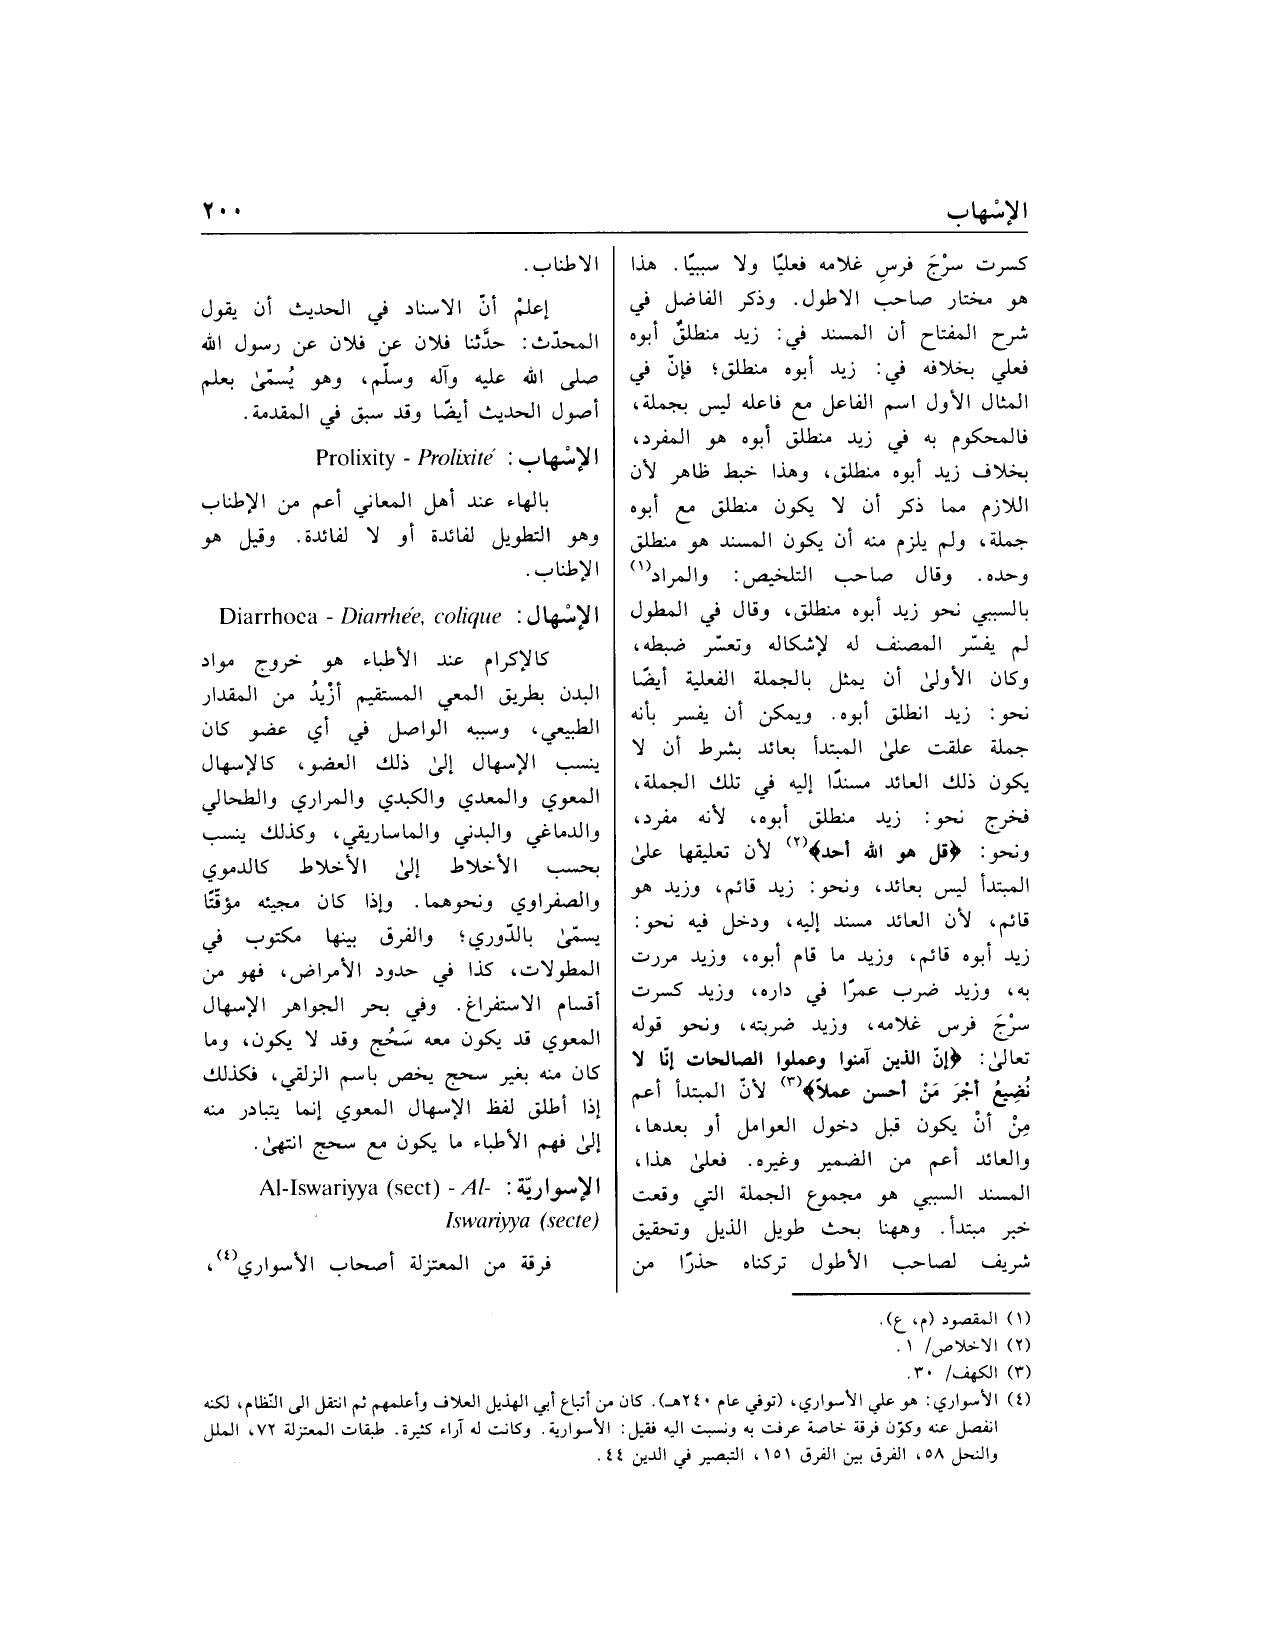 الإسْهاب
٢٠٠
كسرت سرْجَ فرسِ غلامه فعليًا ولا سببيًا. هذا
هو مختار صاحب الاطول. وذكر الفاضل في
شرح المفتاح أن المسند في: زيد منطلقٌ أبوه
فعلي بخلافه في: زيد أبوه منطلق؛ فإنّ في
المثال الأول اسم الفاعل مع فاعله ليس بجملة،
فالمحكوم به في زيد منطلق أبوه هو المفرد،
بخلاف زيد أبوه منطلق، وهذا خبط ظاهر لأن
اللازم مما ذكر أن لا يكون منطلق مع أبوه
جملة، ولم يلزم منه أن يكون المسند هو منطلق
وحده. وقال صاحب التلخيص: والمراد(١)
بالسببي نحو زيد أبوه منطلق، وقال في المطول
لم يفسّر المصنف له لإشكاله وتعسّر ضبطه،
وكان الأولىٰ أن يمثل بالجملة الفعلية أيضًا
نحو: زيد انطلق أبوه. ويمكن أن يفسر بأنه
جملة علقت علىٰ المبتدأ بعائد بشرط أن لا
يكون ذلك العائد مسندًا إليه في تلك الجملة،
فخرج نحو: زيد منطلق أبوه، لأنه مفرد،
ونحو: ﴿قل هو الله أحد﴾(٢) لأن تعليقها علىٰ
المبتدأ ليس بعائد، ونحو: زيد قائم، وزيد هو
قائم، لأن العائد مسند إليه، ودخل فيه نحو:
زيد أبوه قائم، وزيد ما قام أبوه، وزيد مررت
به، وزيد ضرب عمرًا في داره، وزيد كسرت
سرْجَ فرس غلامه، وزيد ضربته، ونحو قوله
تعالىٰ: ﴿إنّ الذين آمنوا وعملوا الصالحات إنّا لا
نُضِيعُ أجْرَ مَنْ أحسن عملاً﴾(٣) لأنّ المبتدأ أعم
مِنْ أنْ يكون قبل دخول العوامل أو بعدها،
والعائد أعم من الضمير وغيره. فعلىٰ هذا،
المسند السببي هو مجموع الجملة التي وقعت
خبر مبتدأ. وههنا بحث طويل الذيل وتحقيق
شريف لصاحب الأطول تركناه حذرًا من
الاطناب.
إعلمْ أنّ الاسناد في الحديث أن يقول
المحدّث: حدَّثنا فلان عن فلان عن رسول الله
صلى الله عليه وآله وسلّم، وهو يُسمّىٰ بعلم
أصول الحديث أيضًا وقد سبق في المقدمة.
الإسْهاب: Prolixity - Prolixité
بالهاء عند أهل المعاني أعم من الإطناب
وهو التطويل لفائدة أو لا لفائدة. وقيل هو
الإطناب.
الإسْهال: Diarrhoea - Diarrhée, colique
كالإكرام عند الأطباء هو خروج مواد
البدن بطريق المعي المستقيم أزْيدُ من المقدار
الطبيعي، وسببه الواصل في أي عضو كان
ينسب الإسهال إلىٰ ذلك العضو، كالإسهال
المعوي والمعدي والكبدي والمراري والطحالي
والدماغي والبدني والماساريقي، وكذلك ينسب
بحسب الأخلاط إلىٰ الأخلاط كالدموي
والصفراوي ونحوهما. وإذا كان مجيئه مؤقتًا
يسمّىٰ بالدّوري؛ والفرق بينها مكتوب في
المطولات، كذا في حدود الأمراض، فهو من
أقسام الاستفراغ. وفي بحر الجواهر الإسهال
المعوي قد يكون معه سَحُج وقد لا يكون، وما
كان منه بغير سحج يخص باسم الزلقي، فكذلك
إذا أطلق لفظ الإسهال المعوي إنما يتبادر منه
إلىٰ فهم الأطباء ما يكون مع سحج انتهىٰ.
الإسواريّة: Al-Iswariyya (sect) - Al-
Iswariyya (secte)
فرقة من المعتزلة أصحاب الأسواري(٤)،
(١) المقصود (م، ع).
(٢) الاخلاص/ ١.
(٣) الكهف/ ٣٠.
(٤) الأسواري: هو علي الأسواري، (توفي عام ٢٤٠هـ). كان من أتباع أبي الهذيل العلاف وأعلمهم ثم انتقل الى النّظام، لكنه
انفصل عنه وكوّن فرقة خاصة عرفت به ونسبت اليه فقيل: الأسوارية. وكانت له آراء كثيرة. طبقات المعتزلة ٧٢، الملل
والنحل ٥٨، الفرق بين الفرق ١٥١، التبصير في الدين ٤٤.